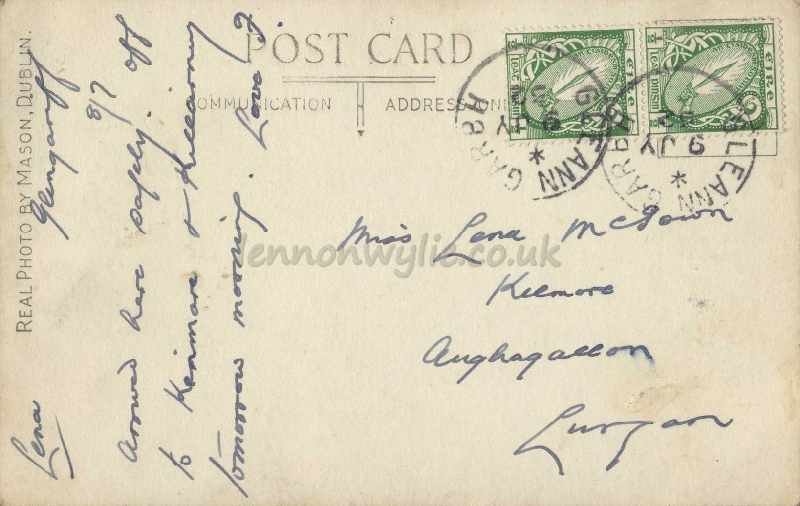 POST CARD
COMMUNICATION ADDRESS ONLY
REAL PHOTO BY MASON, DUBLIN.
Lena Glengariff
8/7
Arrived here safely. Off
to Kenmare & Killarney
tomorrow morning. Love J
Miss Lena McGown
Kilmore
Aughagallon
Lurgan
GLEANN GARBH
9 JY
GLEANN GARBH
9 JY
éire
éire
lennonwylie.co.uk